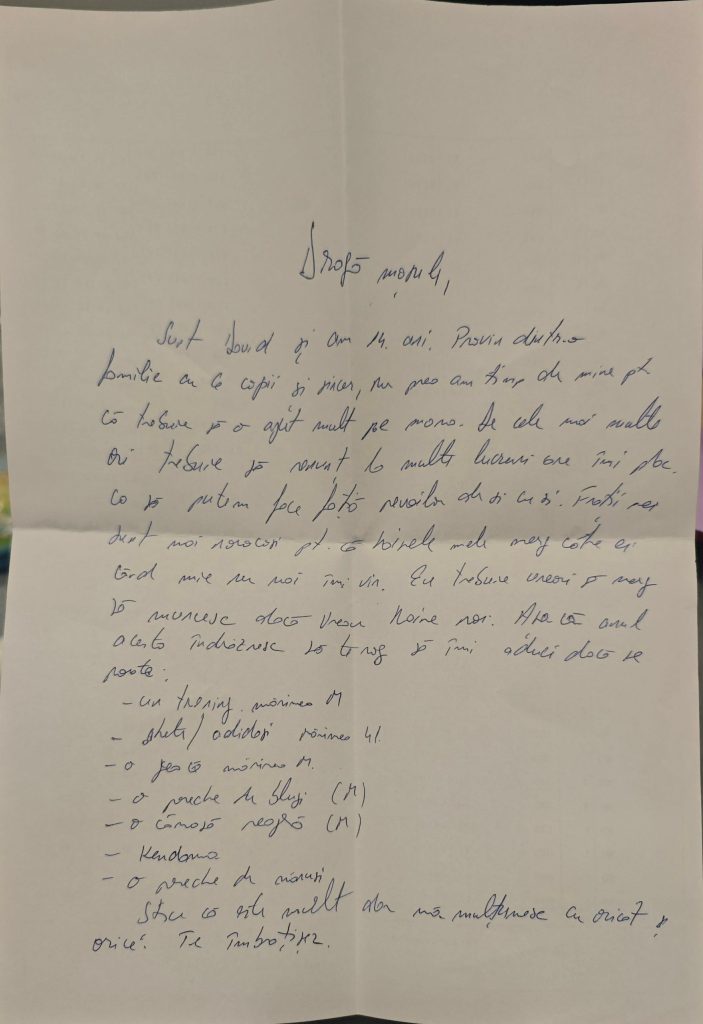 Dragă moșule,
Sunt David și am 14 ani. Provin dintr-o
familie cu 6 copii și sincer, nu prea am timp de mine pt.
că trebuie să o ajut mult pe mama. De cele mai multe
ori trebuie să renunț la multe lucruri care îmi plac.
ca să putem face față nevoilor de zi cu zi. Frații mei
sunt mai norocoși pt. că hainele mele merg către ei
când mie nu mai îmi vin. Eu trebuie uneori să merg
să muncesc dacă vreau haine noi. Așa că anul
acesta îndrăznesc să te rog să îmi aduci dacă se
poate:
- un trening mărimea M
- ghete/adidași mărimea 41.
- o geacă mărimea M.
- o pereche de blugi (M)
- o cămașă neagră (M)
- Kendama
- o pereche de mănuși
Știu că este mult dar mă mulțumesc cu oricât și
orice. Te îmbrățișez.